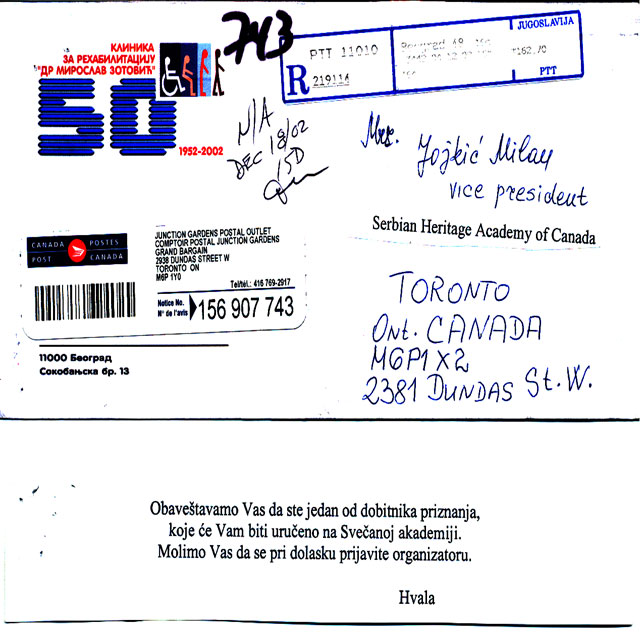 КЛИНИКА
ЗА РЕХАБИЛИТАЦИЈУ
"ДР МИРОСЛАВ ЗОТОВИЋ"
50
1952-2002
743
N/A
DEC 18/02
JUGOSLAVIJA
R
PTT 11010
219114
162.70
PTT
Mrs. Jojkić Milan
vice president
Serbian Heritage Academy of Canada
TORONTO
Ont. CANADA
M6P1X2
2381 DUNDAS St.W.
CANADA POSTES
POST CANADA
JUNCTION GARDENS POSTAL OUTLET
COMPTOIR POSTAL JUNCTION GARDENS
GRAND BARGAIN
2938 DUNDAS STREET W
TORONTO ON
M6P 1Y0
Tel/tél.: 416 769-2917
Notice No.
N° de l'avis
156 907 743
11000 Београд
Сокобањска бр. 13
Obaveštavamo Vas da ste jedan od dobitnika priznanja,
koje će Vam biti uručeno na Svečanoj akademiji.
Molimo Vas da se pri dolasku prijavite organizatoru.
Hvala